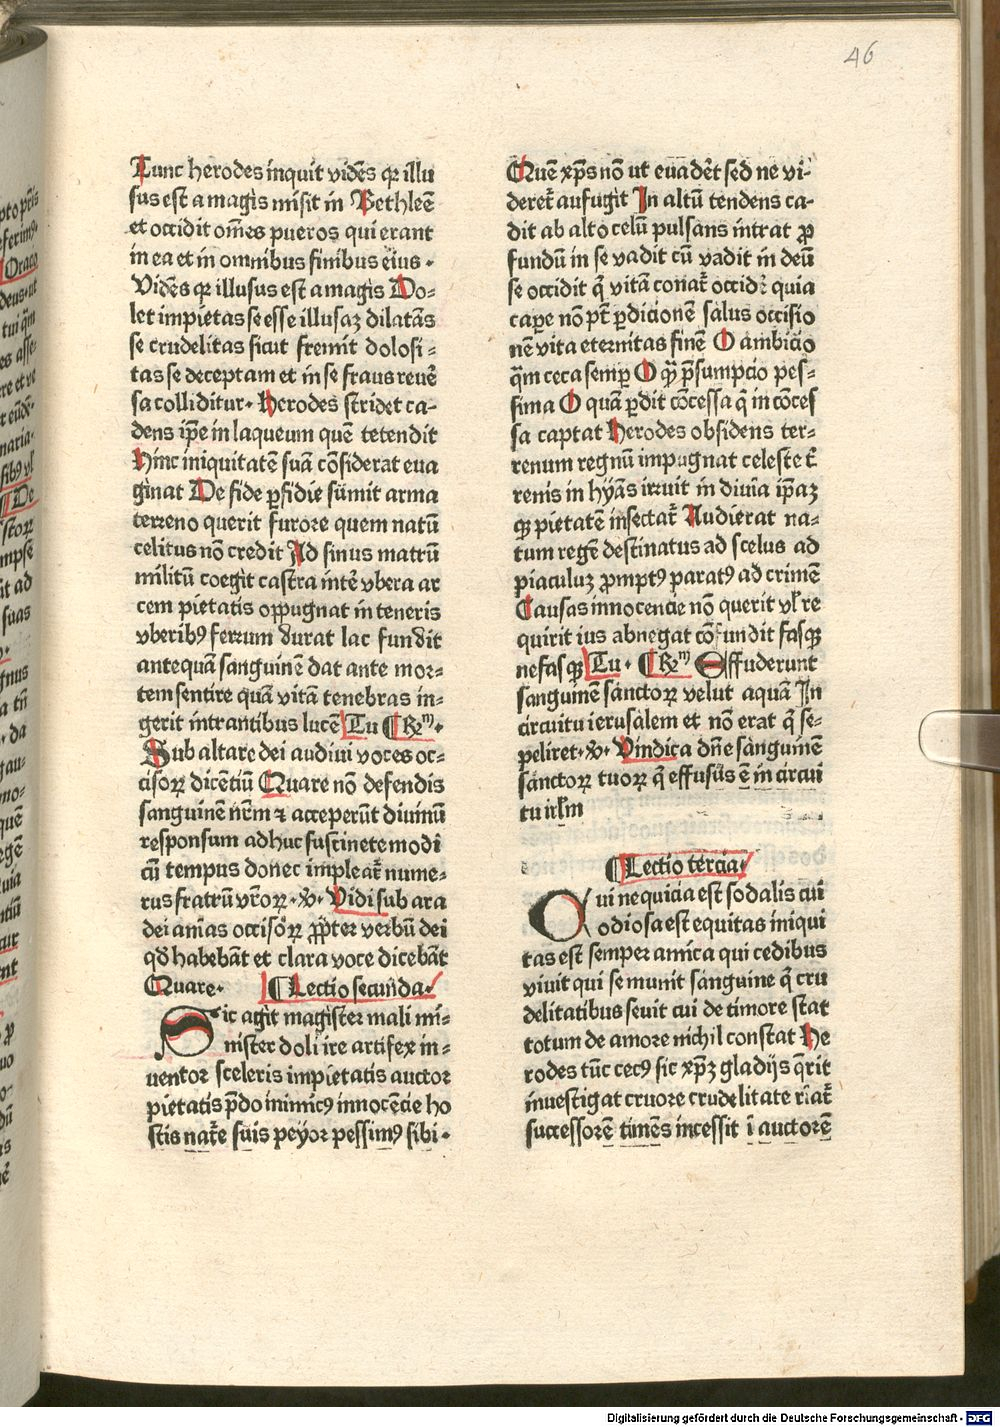 46
Tunc herodes inquit vidēs qꝛ illu
sus est a magis misit in Bethleē
et occidit om̄es pueros qui erant
in ea et in omnibus finibus eius ·
Vidēs qꝛ illusus est a magis Do⸗
let impietas se esse illusaꝫ dilatās
se crudelitas sicut fremit dolosi⸗
tas se deceptam et in se fraus reuē
sa colliditur · Herodes stridet ca⸗
dens ip̄e in laqueum quē tetendit
Hinc iniquitatē suā cōsiderat eua
ginat De fide ꝑfidie sūmit arma
terreno querit furore quem natū
celitus nō credit Ad sinus matrū
militū coegit castra intē vbera ar
cem pietatis oppugnat in teneris
vberibꝰ ferrum durat lac fundit
antequā sanguinē dat ante mor⸗
tem sentire quā vitā tenebras in⸗
gerit intrantibus lucē Tu ¶ Rm̄ ·
Sub altare dei audiui voces oc⸗
cisoꝝ dicētiū Quare nō defendis
sanguinē nr̄m ⁊ acceperūt diuinū
responsum adhuc sustinete modi
cū tempus donec impleat̄ nume⸗
rus fratrū vr̄oꝝ · ꝟ · Vidi sub ara
dei aīas occisōꝝ ꝓpter verbū dei
qd̄ habebāt et clara voce dicebāt
Quare · ¶ Lectio secūda ·
Sic agit magister mali mi⸗
nister doli ire artifex in⸗
uentor sceleris impietatis auctor
pietatis p̄do inimicꝰ innocēcie ho
stis nat̄e suis peyor pessimꝰ sibi ·
Quē xp̄s nō ut euadēt sed ne vi⸗
deret̄ aufugit In altū tendens ca⸗
dit ab alto celū pulsans intrat ꝓ
fundū in se vadit cū vadit in deū
se occidit q̄ vitā conat̄ occidꝫ quia
caꝑe nō pt̄ ꝑdicionē salus occisio
nē vita eternitas finē O ambicio
q̄m ceca semꝑ O qꝫ p̄sumpcio pes⸗
sima O quā ꝑdit cōcessa q̄ in cōces
sa captat Herodes obsidens ter⸗
renum regnū impugnat celeste t̄
renis in hyās irruit in diuīa ip̄aꝫ
qꝫ pietatē insectat̄ Audierat na⸗
tum regē destinatus ad scelus ad
piaculuꝫ prompt⁹ parat⁹ ad crimē
Causas innocencie nō querit vl̄ re
quirit ius abnegat cōfundit fasqꝫ
nefasqꝫ Tu · ¶ Rm̄ Effuderunt
sanguinē sanctoꝝ velut aquā In
circuitu ierusalem et nō erat q̄ se⸗
peliret · ꝟ · Vindica dn̄e sanguinē
sanctoꝝ tuoꝝ q̄ effusus ē in circui
tu irl̄m
¶ Lectio tercia ·
Qui nequicia est sodalis cui
odiosa est equitas iniqui
tas est semper amica qui cedibus
viuit qui se munit sanguine q̄ cru
delitatibus seuit cui de timore stat
totum de amore nichil constat He
rodes tūc cecꝰ sic xp̄ꝫ gladijs q̄rit
inuestigat cruore crudelitate riat̄
successorē timēs incessit ī auctorē
Digitalisierung gefördert durch die Deutsche Forschungsgemeinschaft - DFG